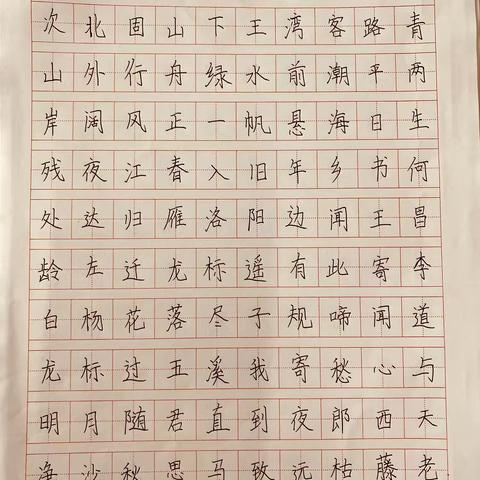 次北固山下王湾客路青
山外行舟绿水前潮平两
岸阔风正一帆悬海日生
残夜江春入旧年乡书何
处达归雁洛阳边闻王昌
龄左迁龙标遥有此寄李
白杨花落尽子规啼闻道
龙标过五溪我寄愁心与
明月随君直到夜郎西天
净沙秋思马致远枯藤老